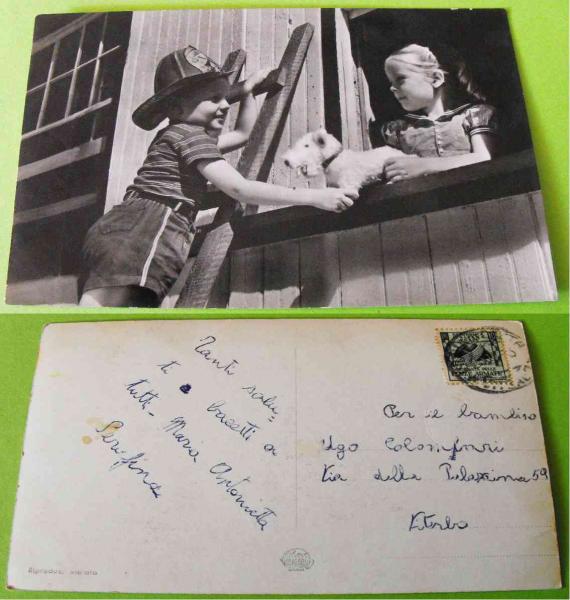 Tanti salu-
ti e bacetti a
tutti- Maria Antonietta
Serafina
Per il bambino
Ugo Colomfrrri
Via della Palazzina 59
Viterbo
Riprodúz. vietata